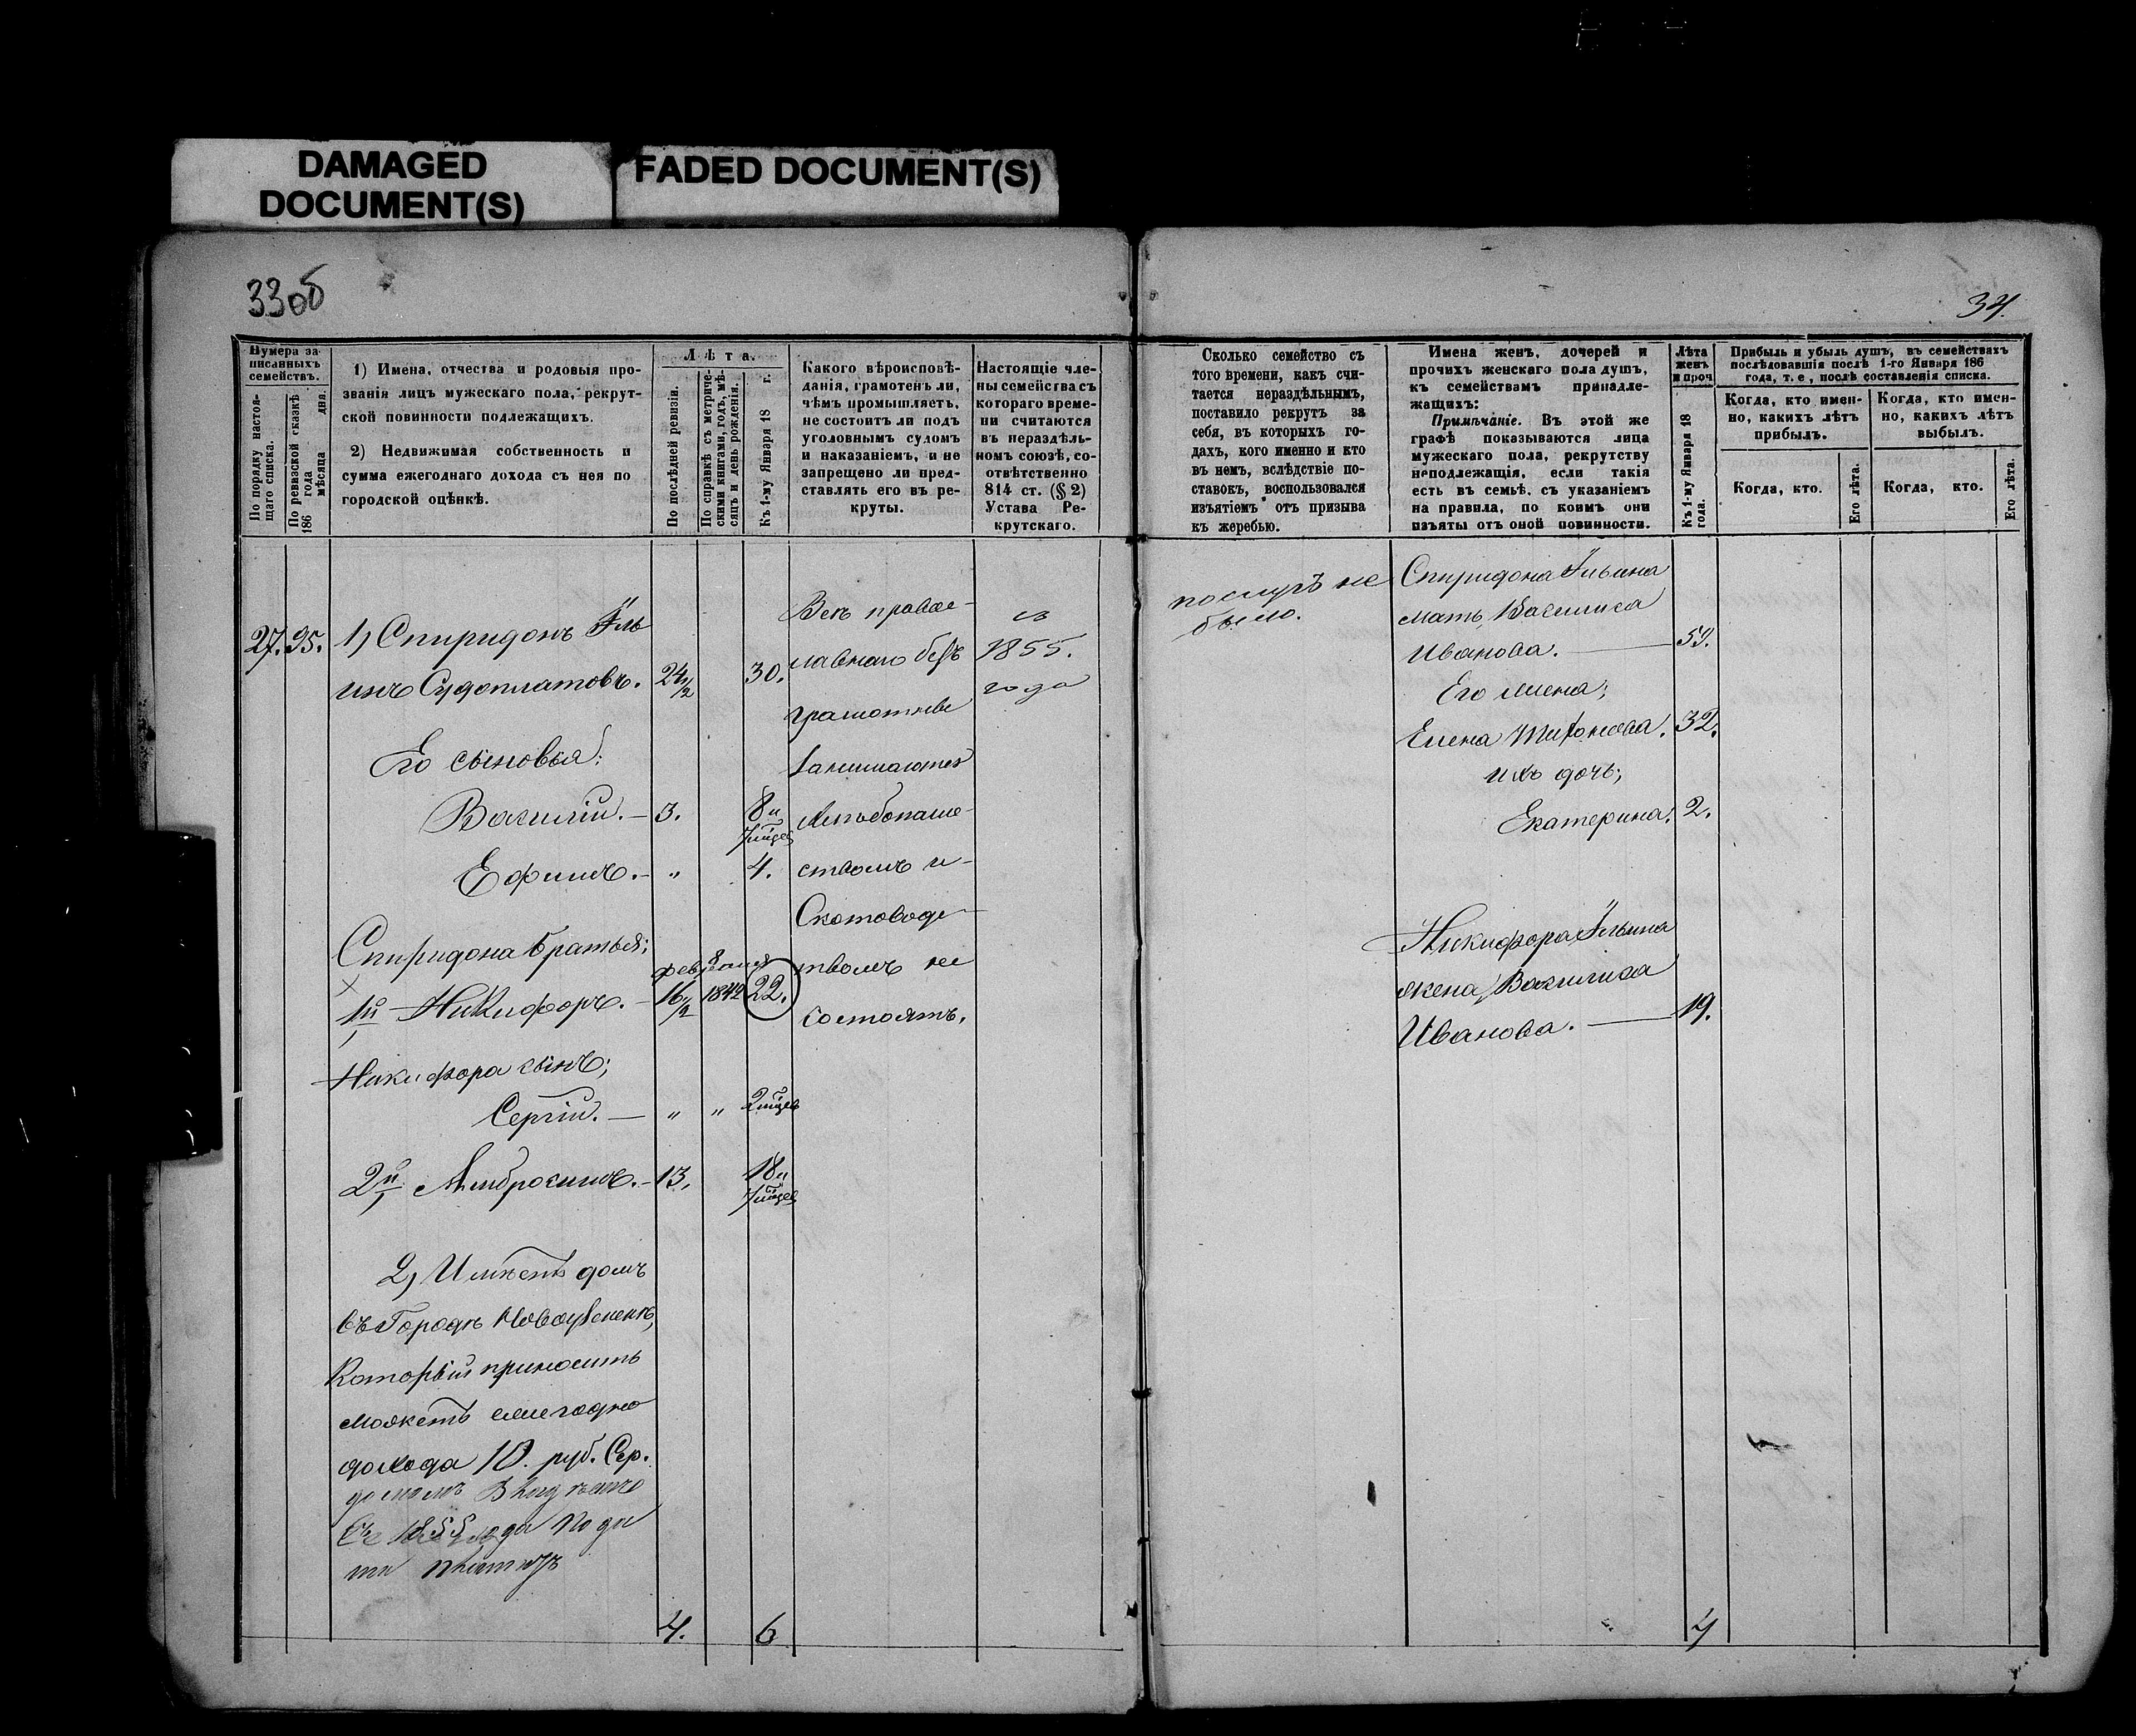 DAMAGED
DOCUMENT(S)
FADED DOCUMENT(S)
33об
34.
Нумера за-
писанныхъ
семействъ.
По порядку настоя-
щаго списка.
По ревизской сказкѣ
186 года
мѣсяца дня.
1) Имена, отчества и родовыя про-
званія лицъ мужескаго пола, рекрут-
ской повинности подлежащихъ.
2) Недвижимая собственность и
сумма ежегоднаго дохода съ нея по
городской оцѣнкѣ.
Лѣта.
По послѣдней ревизіи.
По справкѣ съ метриче-
скими книгами, годъ, мѣ-
сяцъ и день рожденія.
Къ 1-му Января 18 г.
Какого вѣроисповѣ-
данія, грамотенъ ли,
чѣмъ промышляетъ,
не состоитъ ли подъ
уголовнымъ судомъ
и наказаніемъ, и не
запрещено ли пред-
ставлять его въ ре-
круты.
Настоящіе чле-
ны семейства съ
котораго време-
ни считаются
въ нераздѣль-
номъ союзѣ, со-
отвѣтственно
814 ст. (§ 2)
Устава Ре-
крутскаго.
27. 95. 1) Спиридонъ Иль
инъ Судоплатовъ. 24 1/2 30.
Его сыновья:
Василій. — 3. 8 и
7 мѣцев
Ефимъ. — „ 4.
Спиридона братья;
февраля 8
1й Никифоръ. — 16 1/2 1842 22.
Никифора сынъ;
Сергій. — „ „ 2 мѣцев
2й Амбросимъ. — 13. 18 и
7 мѣцев
2) Имѣетъ домъ
въ Городѣ Новоузенскѣ,
который приносить
можетъ ежегодно
дохода 10. руб. Сер.
домомъ владѣютъ
съ 1855 года пода
ти платютъ
4. 6
Всѣ правос-
лавнаго безъ
грамотные
занимаются
хлѣбопаше-
ствомъ и
Скотоводс-
твомъ не
состоятъ.
съ
1855.
года
Сколько семейство съ
того времени, какъ счи-
тается нераздѣльнымъ,
поставило рекрутъ за
себя, въ которыхъ го-
дахъ, кого именно и кто
въ немъ, вслѣдствіе по-
ставокъ, воспользовался
изъятіемъ отъ призыва
къ жеребью.
Имена женъ, дочерей и
прочихъ женскаго пола душъ,
къ семействамъ принадле-
жащихъ:
Примѣчаніе. Въ этой же
графѣ показываются лица
мужескаго пола, рекрутству
неподлежащія, если такія
есть въ семьѣ, съ указаніемъ
на правила, по коимъ они
изъяты отъ оной повинности.
Лѣта
женъ
и проч
Къ 1-му Января 18
года.
Прибыль и убыль душъ, въ семействахъ
послѣдовавшія послѣ 1-го Января 186
года, т. е., послѣ составленія списка.
Когда, кто имен-
но, какихъ лѣтъ
прибылъ.
Когда, кто имен-
но, какихъ лѣтъ
выбылъ.
Когда, кто.
Его лѣта.
Когда, кто.
Его лѣта.
не
было.
Спиридона Ильина
мать, Василиса
Иванова. —
Его жена;
Елена Тифонова. 32.
ихъ дочь;
Екатерина. 2.
Никифора Ильина
жена, Василиса
Иванова. — 19.
4